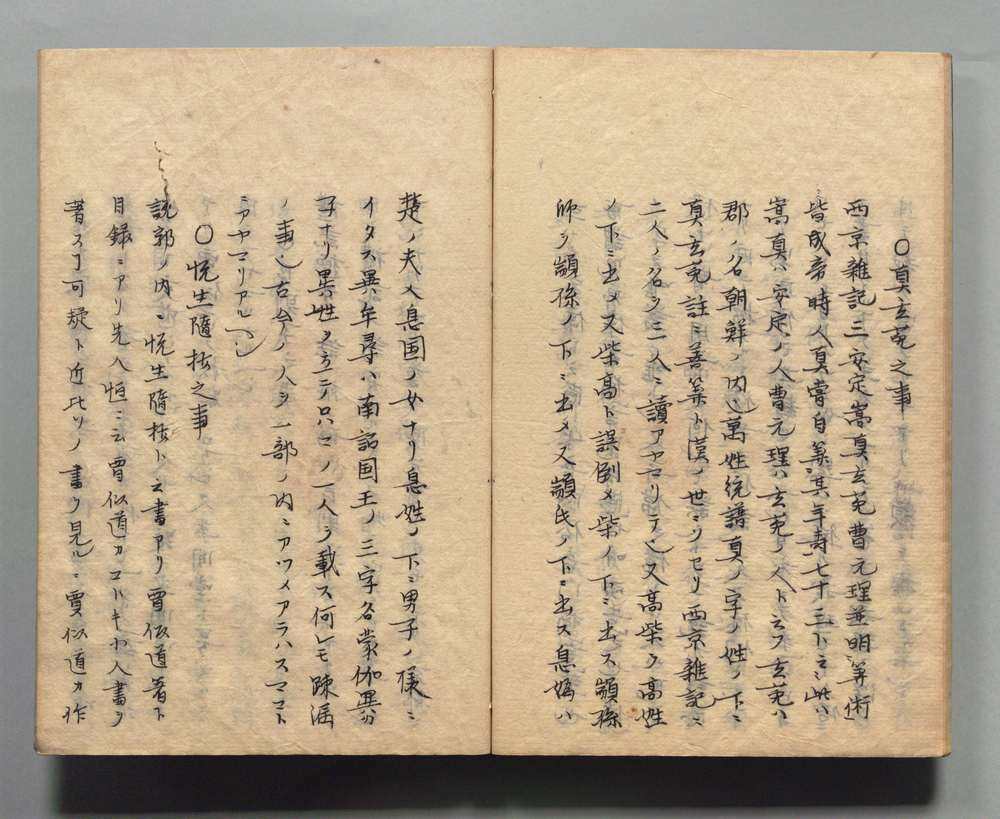 ○真玄菟之事
西京雜記三安定嵩真玄菟曹元理並明筭術
皆成帝時人真嘗自筭其年壽七十三トミ此ハ
嵩真ハ安定ノ人曹元理ハ玄菟ノ人トミフ玄菟ハ
郡ノ名朝鮮ノ内也萬姓統譜真ノ字ノ姓ノ下ニ
真玄菟註ニ善筭ト漢ノ世ニシセリ西京雜記ニ
二人ノ名ヲ二人ニ讀アヤマリテ也又高柴ヲ高姓
ノ下ニ出メ又柴高ト誤倒メ柴イ下ニ出ス顓孫
師ヲ顓孫ノ下ニ出メ又顓氏ノ下ニ出ス息媯ハ
楚ノ夫人息国ノ女ナリ息姓ノ下ニ男子ノ様ニ
イタス異牟尋ハ南詔国王ノ三字名蒙伽異カ
子ナリ異姓ヲ立テ只コノ一人ヲ載ス何レモ疎漏
ノ事也古今ノ人ヲ一部ノ内ニアツメアラハスママト
ニアヤマリアルヘシ
○悦生隨抄之事
説郛ノ内ニ悦生隨抄ト云書アリ賈似道著ト
目録ニアリ先人恒ニ云賈似道カコトキ小人書ヲ
著スヿ可疑ト近比ソノ書ヲ見ルニ賈似道カ作